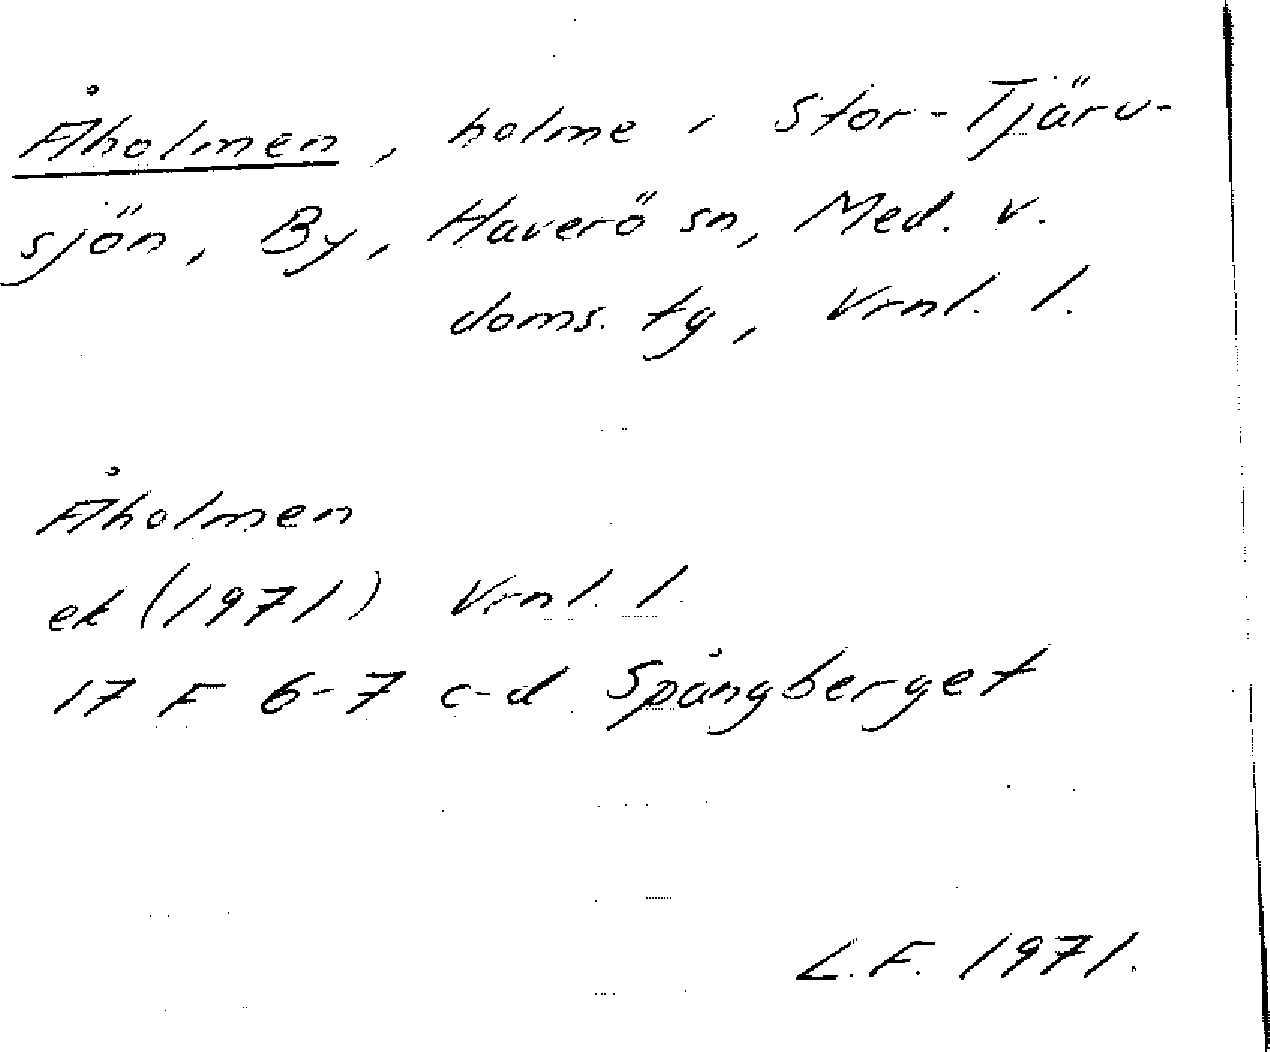 Åholmen, holme i Stor-Tjärv-
sjön, By, Haverö sn, Med. v.
doms. tg, Vrnl. l.
Åholmen
ek (1971) Vrnl. l.
17 F 6-7 c-d Spångberget
L.F. 1971.